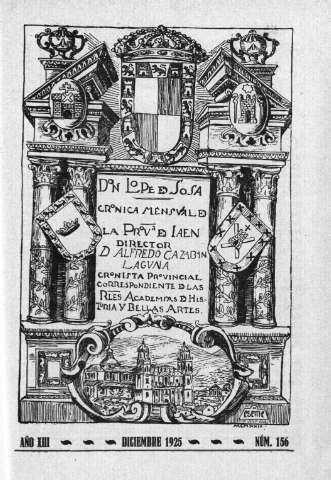 DON LOPE D SOSA
CRONICA MENSUAL D
LA PROVᴬ D JAEN
DIRECTOR
D ALFREDO CAZABAN
LAGUNA
CRONISTA PROVINCIAL
CORRESPONDIENTE D LAS
RLES ACADEMIAS D HIS-
TORIA Y BELLAS ARTES.
AÑO XIII DICIEMBRE 1925 NÚM. 156